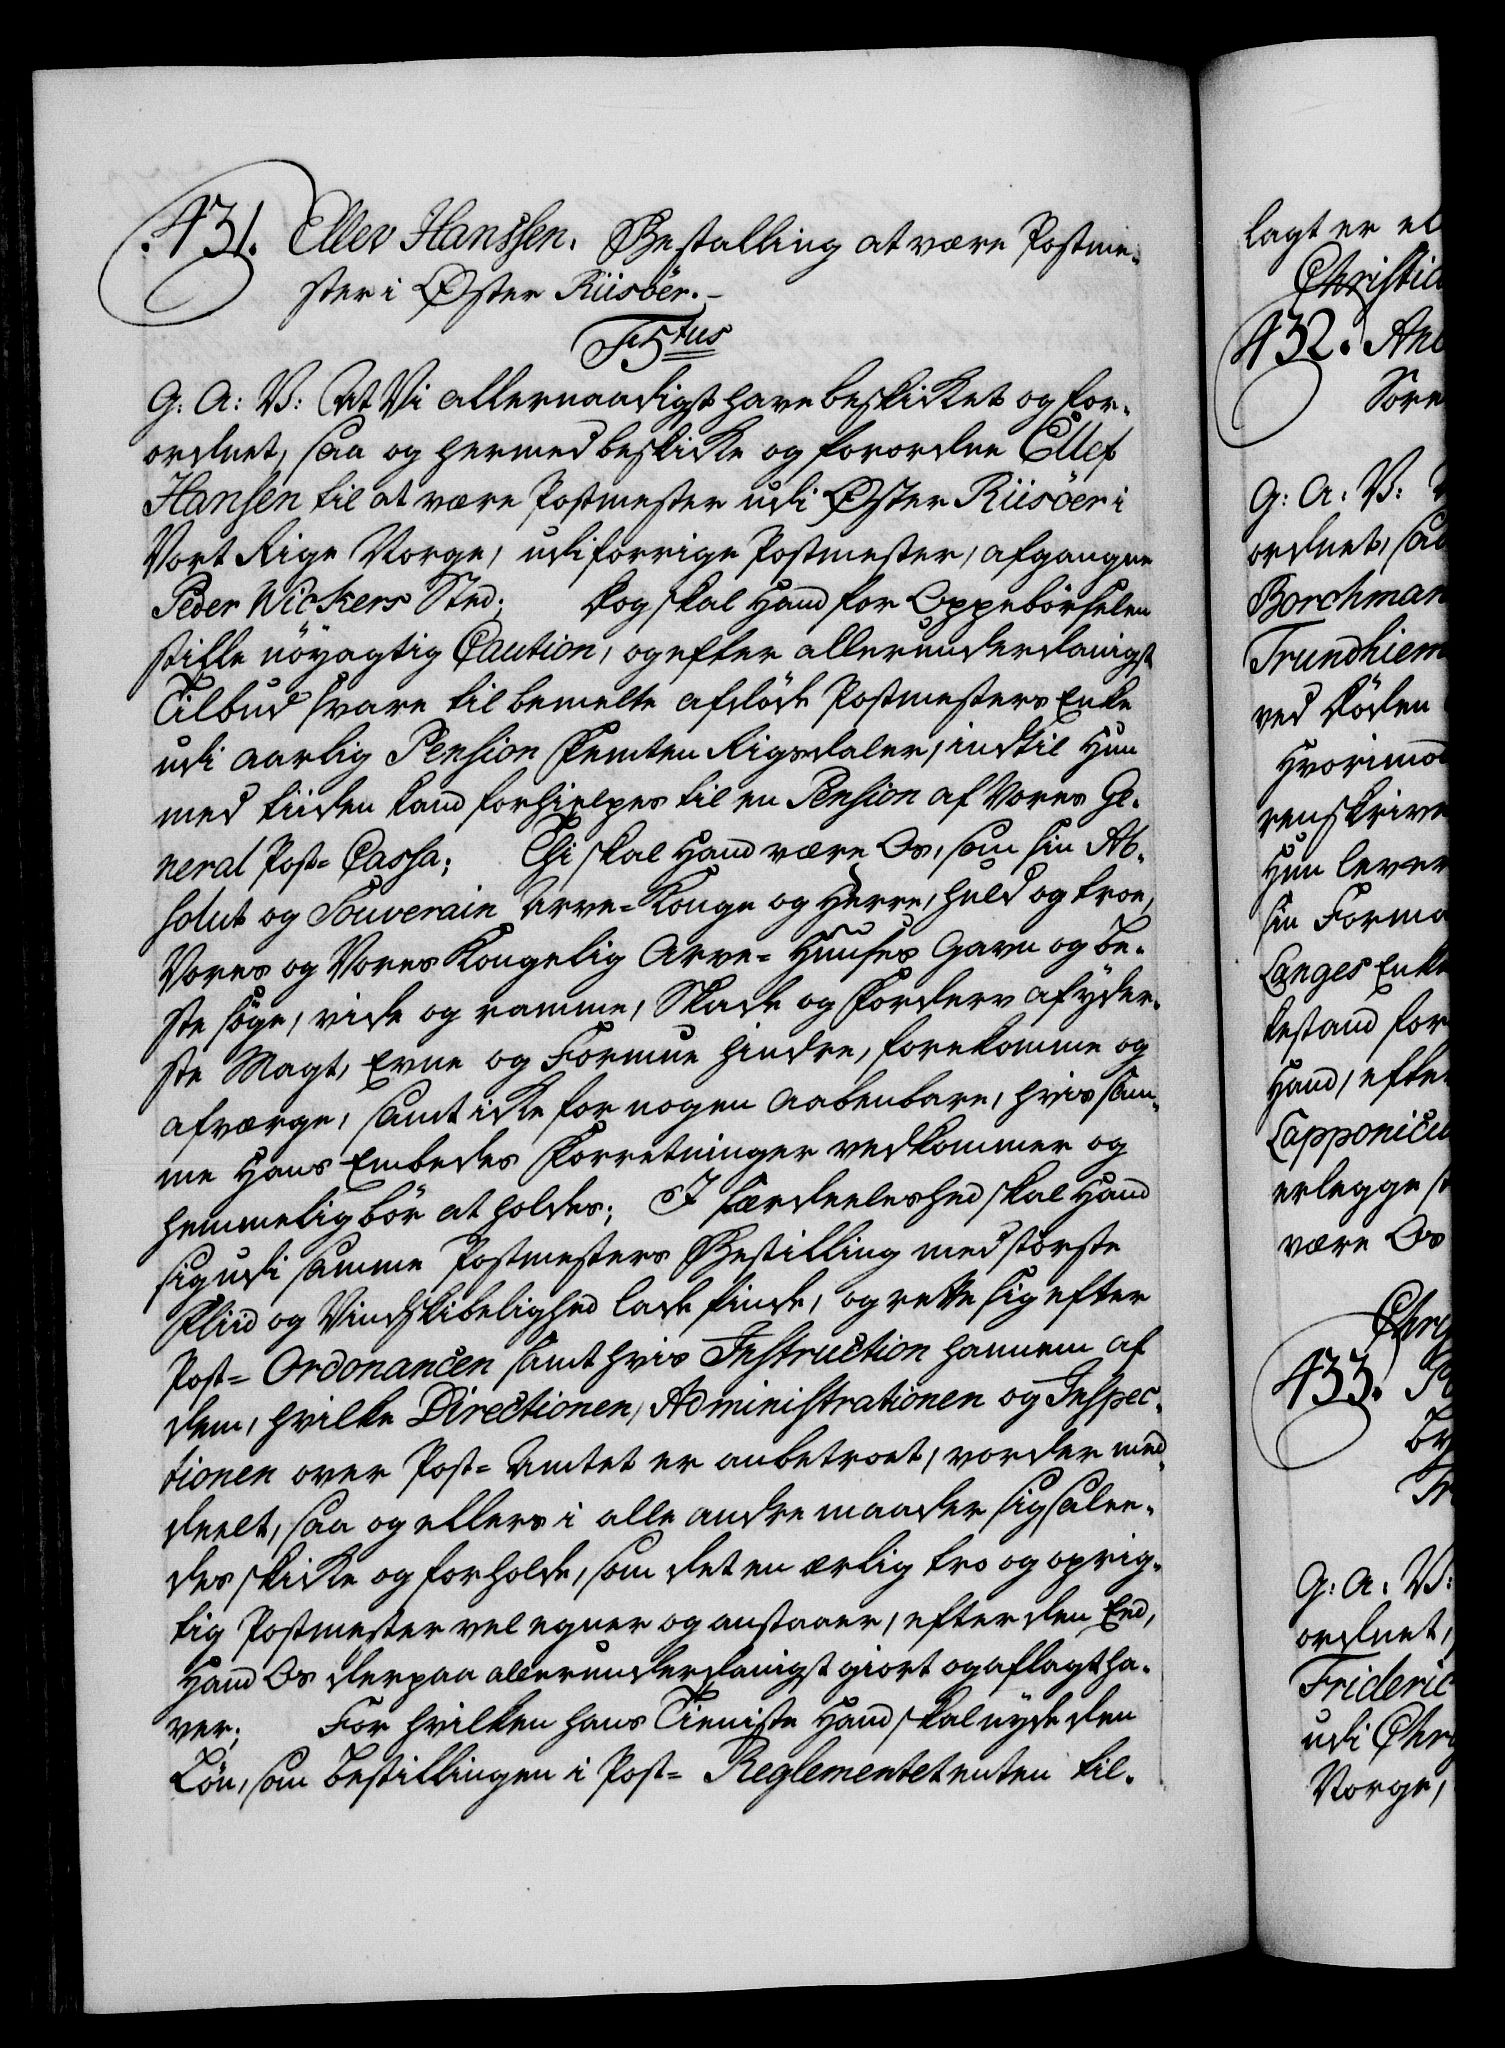 431. Ellev Hanssen. Bestalling at være Postme-
ster i Øster Riisöer.-
F5tus
G: A: V: At Vi allernaadigst have beskicket og for-
ordnet, saa og hermed beskicke og forordne Ellef
Hansen til at være Postmester udi Øster Riisöer i
Vort Rige Norge, udi forrige Postmester, afgangne
Peder Wickers Sted; dog skal Hand for Oppebörselen
stille nöyagtig Caution, og efter allerunderdanigst
Tilbud svare til bemelte afdöde Postmesters Enke
udi aarlig Pension Femten Rigsdaler, indtil Hun
med tiiden kand forhielpes til en Pension af Vores Ge-
neral Post= Cassa; Thi skal Hand være Os, som sin Ab-
solut og Souverain Arve= Konge og Herre, huld og troe,
Vores og Vores Kongelig Arve= Huuses Gavn og Be-
ste söge, vide og ramme, Skade og Forderv af yder-
ste Magt, Evne og Formue hindre, forekomme og
afværge, samt icke for nogen aabenbare, hvis sam-
me Hans Embedes Forretninger vedkommer og
hemmelig bör at holdes; I særdeeleshed skal Hand
sig udi samme Postmesters Bestilling med störste
Fliid og Vindskibelighed lade finde, og rette sig efter
Post= Ordonancen samt hvis Instruction hannem af
dem, hvilke Directionen, Administrationen og Inspec-
tionen over Post= Amtet er anbetroet, vorder med-
deelt, saa og ellers i alle andre maader sig saalee-
des skicke og forholde, som det en ærlig tro og oprig-
tig Postmester vel egner og anstaaer, efter den Eed,
Hand Os derpaa allerunderdanigst giort og aflagt ha-
ver; For hvilken hans Tieniste Hand skal nyde den
Lön, som Bestillingen i Post= Reglementet enten til-
lagt er el
Christia
432. And
Sore
G: A: V:
ordnet, saa
Borchman
Trundhiem
ved Döden
Hvorimod
renskrive
Hun lever
sin Forma
Langes Enke
bestand for
Hand, efter
Lapponicu
erlegge
være Os
Chri
433.
G: A: V:
ordnet,
Frideric
udi Chri
Norge,